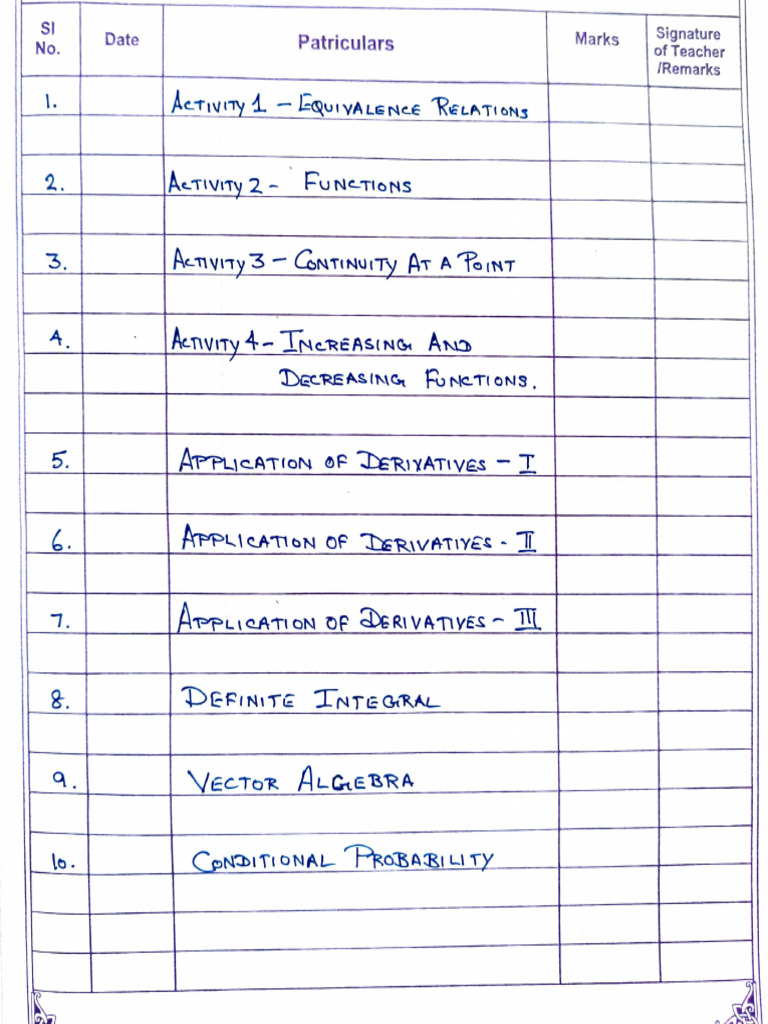 Sl No. Date Patriculars Marks Signature of Teacher /Remarks
1. ACTIVITY 1 - EQUIVALENCE RELATIONS
2. ACTIVITY 2 - FUNCTIONS
3. ACTIVITY 3 - CONTINUITY AT A POINT
4. ACTIVITY 4 - INCREASING AND
DECREASING FUNCTIONS.
5. APPLICATION OF DERIVATIVES - I
6. APPLICATION OF DERIVATIVES - II
7. APPLICATION OF DERIVATIVES - III
8. DEFINITE INTEGRAL
9. VECTOR ALGEBRA
10. CONDITIONAL PROBABILITY